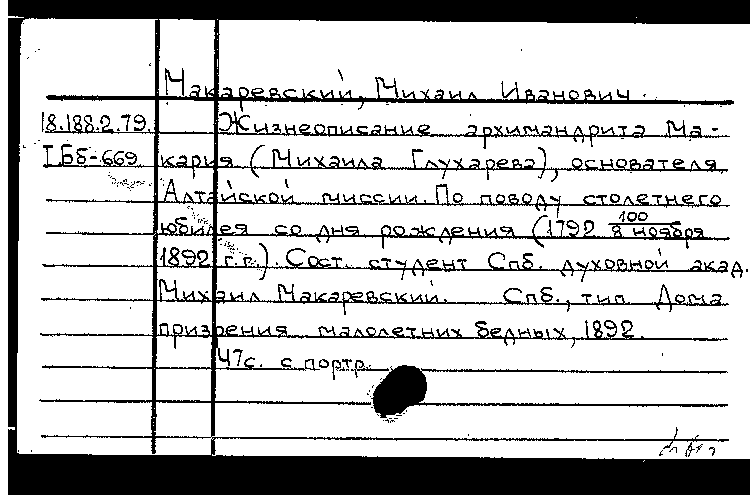 Макаревский, Михаил Иванович.
18.188.2.79. Жизнеописание архимандрита Ма-
I Бб-669 кария (Михаила Глухарева), основателя
Алтайской миссии. По поводу столетнего
юбилея со дня рождения (1792 100/8 ноября
1892 г.г.). Сост. студент Спб. духовной акад.
Михаил Макаревский. Спб., тип. Дома
призрения малолетних бедных, 1892.
47с. с портр.